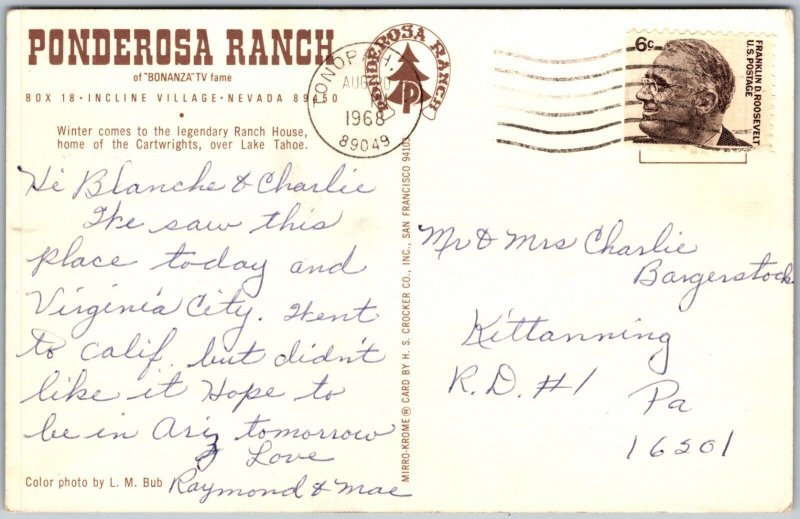 PONDEROSA RANCH
of "BONANZA" TV fame
BOX 18 · INCLINE VILLAGE · NEVADA 89450
Winter comes to the legendary Ranch House,
home of the Cartwrights, over Lake Tahoe.
Hi Blanche & Charlie
We saw this
place today and
Virginia City. Went
to Calif. but didn't
like it Hope to
be in Ariz tomorrow
Love
Raymond & Mae
Color photo by L. M. Bub
PONDEROSA RANCH
P
TONOPAH
AUG
1968
89049
MIRRO-KROME® CARD BY H. S. CROCKER CO., INC., SAN FRANCISCO 94103
6c
FRANKLIN D. ROOSEVELT
U.S. POSTAGE
Mr & Mrs Charlie
Bargerstock
Kittanning
R.D. #1
Pa
16201